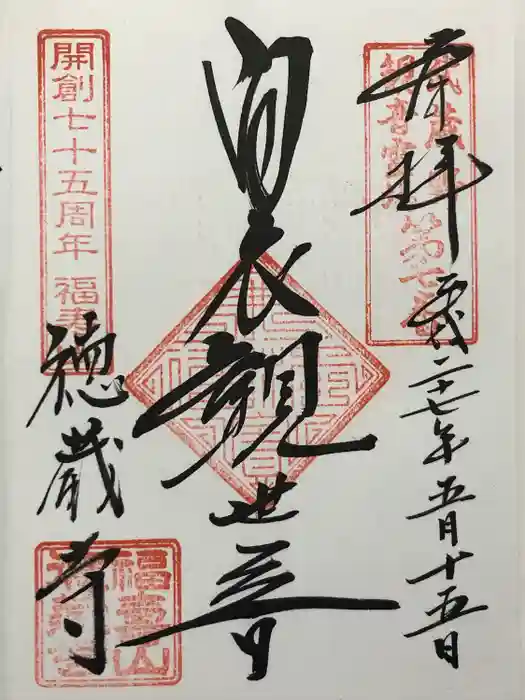 奉拝
平成二十七年五月十五日
白衣観世音
開創七十五周年 福寿
徳蔵寺
福寿山